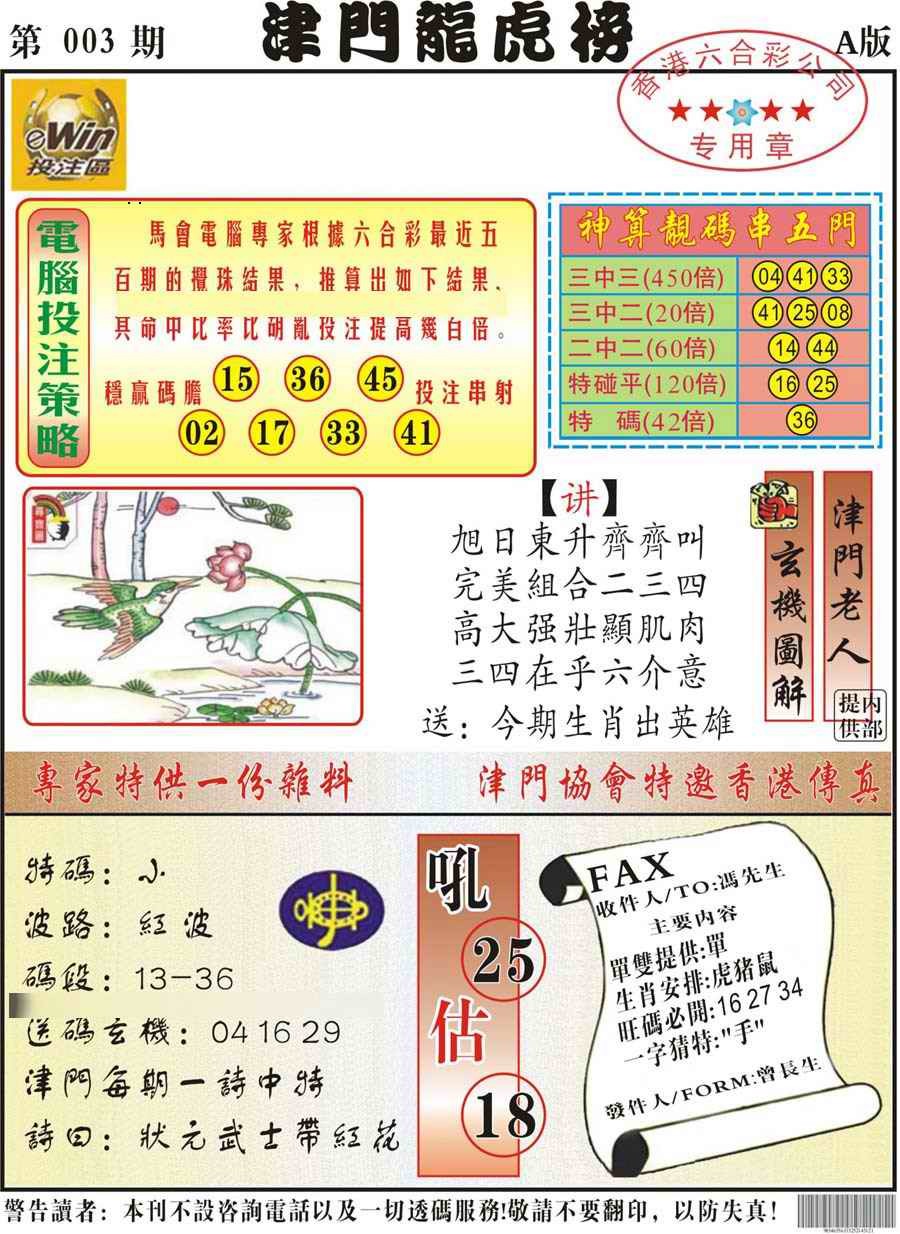 第 003 期
津門龍虎榜
A版
香港六合彩公司
专用章
eWin
投注區
電腦投注策略
馬會電腦專家根據六合彩最近五
百期的攪珠結果，推算出如下結果、
其命中比率比胡亂投注提高幾百倍。
穩贏碼膽 15 36 45 投注串射
02 17 33 41
神算靚碼串五門
三中三(450倍) 04 41 33
三中二(20倍) 41 25 08
二中二(60倍) 14 44
特碰平(120倍) 16 25
特 碼(42倍) 36
【讲】
旭日東升齊齊叫
完美組合二三四
高大强壯顯肌肉
三四在乎六介意
送：今期生肖出英雄
玄機圖解
津門老人
内部提供
專家特供一份雜料
津門協會特邀香港傳真
特碼：小
波路：紅波
碼段：13-36
送碼玄機：04 16 29
津門每期一詩中特
詩曰：狀元武士帶紅花
吼
25
估
18
FAX
收件人/TO:馮先生
主要内容
單雙提供:單
生肖安排:虎猪鼠
旺碼必開:16 27 34
一字猜特:"手"
發件人/FORM:曾長生
警告讀者：本刊不設咨詢電話以及一切透碼服務!敬請不要翻印，以防失真！